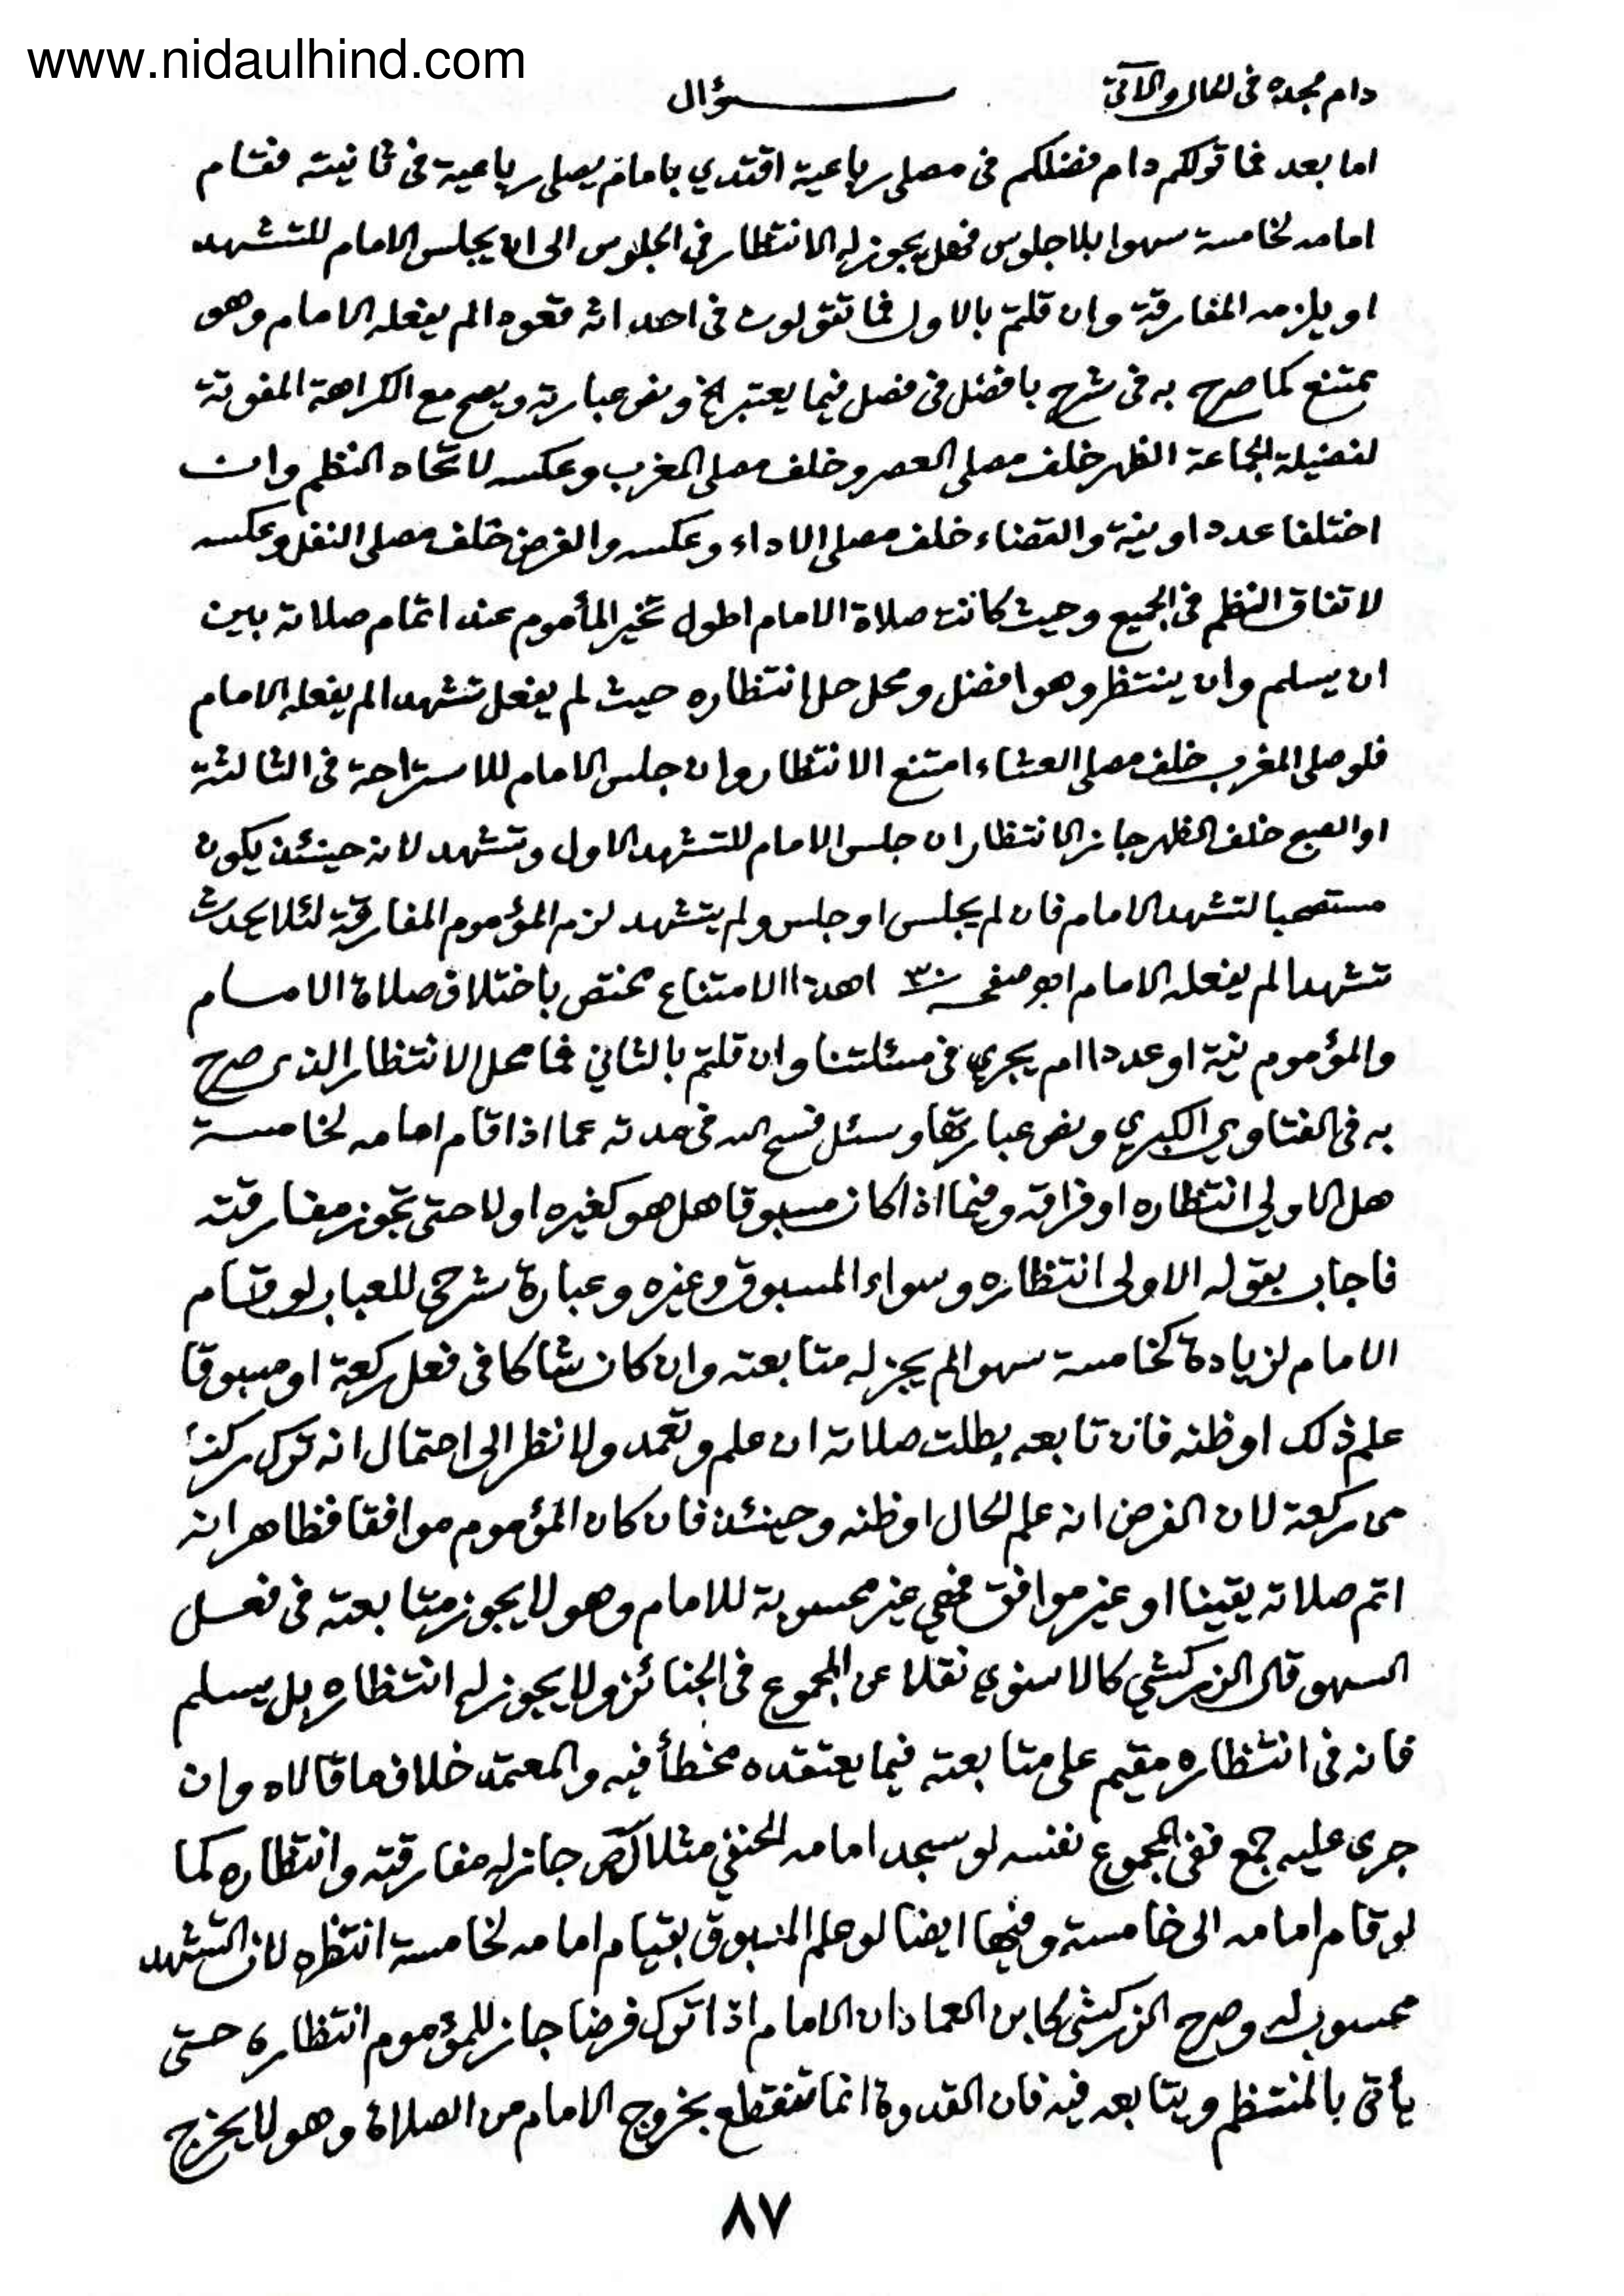 www.nidaulhind.com
دام مجده فى الحال والآتى سؤال
اما بعد فما قولكم دام فضلكم فى مصلى رباعية اقتدي بامام يصلى رباعية فى ثانيته فقام
امامه لخامسة سهوا بلا جلوس فهل يجوز له الانتظار فى الجلوس الى ان يجلس الامام للتشهد
او يلزمه المفارقة وان قلتم بالاول فما تقولون فى احداثه قعودا لم يفعله الامام وهو
يمتنع كما صرح به فى شرح بافضل فى فصل فيما يعتبر الخ ونص عبارته ويصح مع الكراهة المفوتة
لفضيلة الجماعة الظهر خلف مصلى العصر وخلف مصلى المغرب وعكسه لاتحاد النظم وان
اختلفا عددا ونية والقضاء خلف مصلى الاداء وعكسه والفرض خلف مصلى النفل وعكسه
لاتفاق النظم فى الجميع وحيث كانت صلاة الامام اطول تخير المأموم عند اتمام صلاته بين
ان يسلم وان ينتظر وهو افضل ومحل حل انتظاره حيث لم يفعل تشهدا لم يفعله الامام
فلو صلى المغرب خلف مصلى العشاء امتنع الانتظار وان جلس الامام للاستراحة فى الثالثة
او الصبح خلف الظهر جاز الانتظار ان جلس الامام للتشهد الاول وتشهد لانه حينئذ يكون
مستصحبا لتشهد الامام فان لم يجلس او جلس ولم يتشهد لزم المؤموم المفارقة لئلا يحدث
تشهدا لم يفعله الامام اهو صفحه ٣٠ اهذا الامتناع مختص باختلاف صلاة الامام
والمؤموم نية او عددا ام يجري فى مسئلتنا وان قلتم بالثاني فما محل الانتظار الذى صرح
به فى الفتاوي الكبرى ونص عبارتها وسئل فسح الله فى مدته عما اذا قام امامه لخامسة
هل الاولي انتظاره او فراقه وفيما اذا كان مسبوقا هل هو كغيره اولا حتى تجوز مفارقته
فاجاب بقوله الاولى انتظاره وسواء المسبوق وغيره وعبارة شرحى للعباب لو قام
الامام لزيادة كخامسة سهوا لم يجز له متابعته وان كان شاكا فى فعل ركعة او مسبوقا
علم ذلك او ظنه فان تابعه بطلت صلاته ان علم وتعمد ولا نظر الى احتمال انه ترك ركنا
من ركعة لان الفرض انه علم الحال او ظنه وحينئذ فان كان المؤموم موافقا فظاهر انه
اتم صلاته يقينا او غير موافق فهي غير محسوبة للامام وهو لا يجوز متابعته فى فعل
السهو قال الزركشي كالاسنوي نقلا عن المجموع فى الجنائز ولا يجوز له انتظاره بل يسلم
فانه فى انتظاره مقيم على متابعته فيما يعتقده مخطأ فيه والمعتمد خلاف ما قالاه وان
جرى عليه جمع ففى المجموع نفسه لو سجد امامه الحنفي مثلا لص جاز له مفارقته وانتظاره كما
لو قام امامه الى خامسة وفيها ايضا لو علم المسبوق بقيام امامه لخامسة انتظره لان التشهد
محسوب له وصرح الزركشى كابن العماد ان الامام اذا ترك فرضا جاز للمؤموم انتظاره حتى
يأتى بالمنتظم ويتابعه فيه فان القدوة انما تنقطع بخروج الامام من الصلاة وهو لا يخرج
٨٧